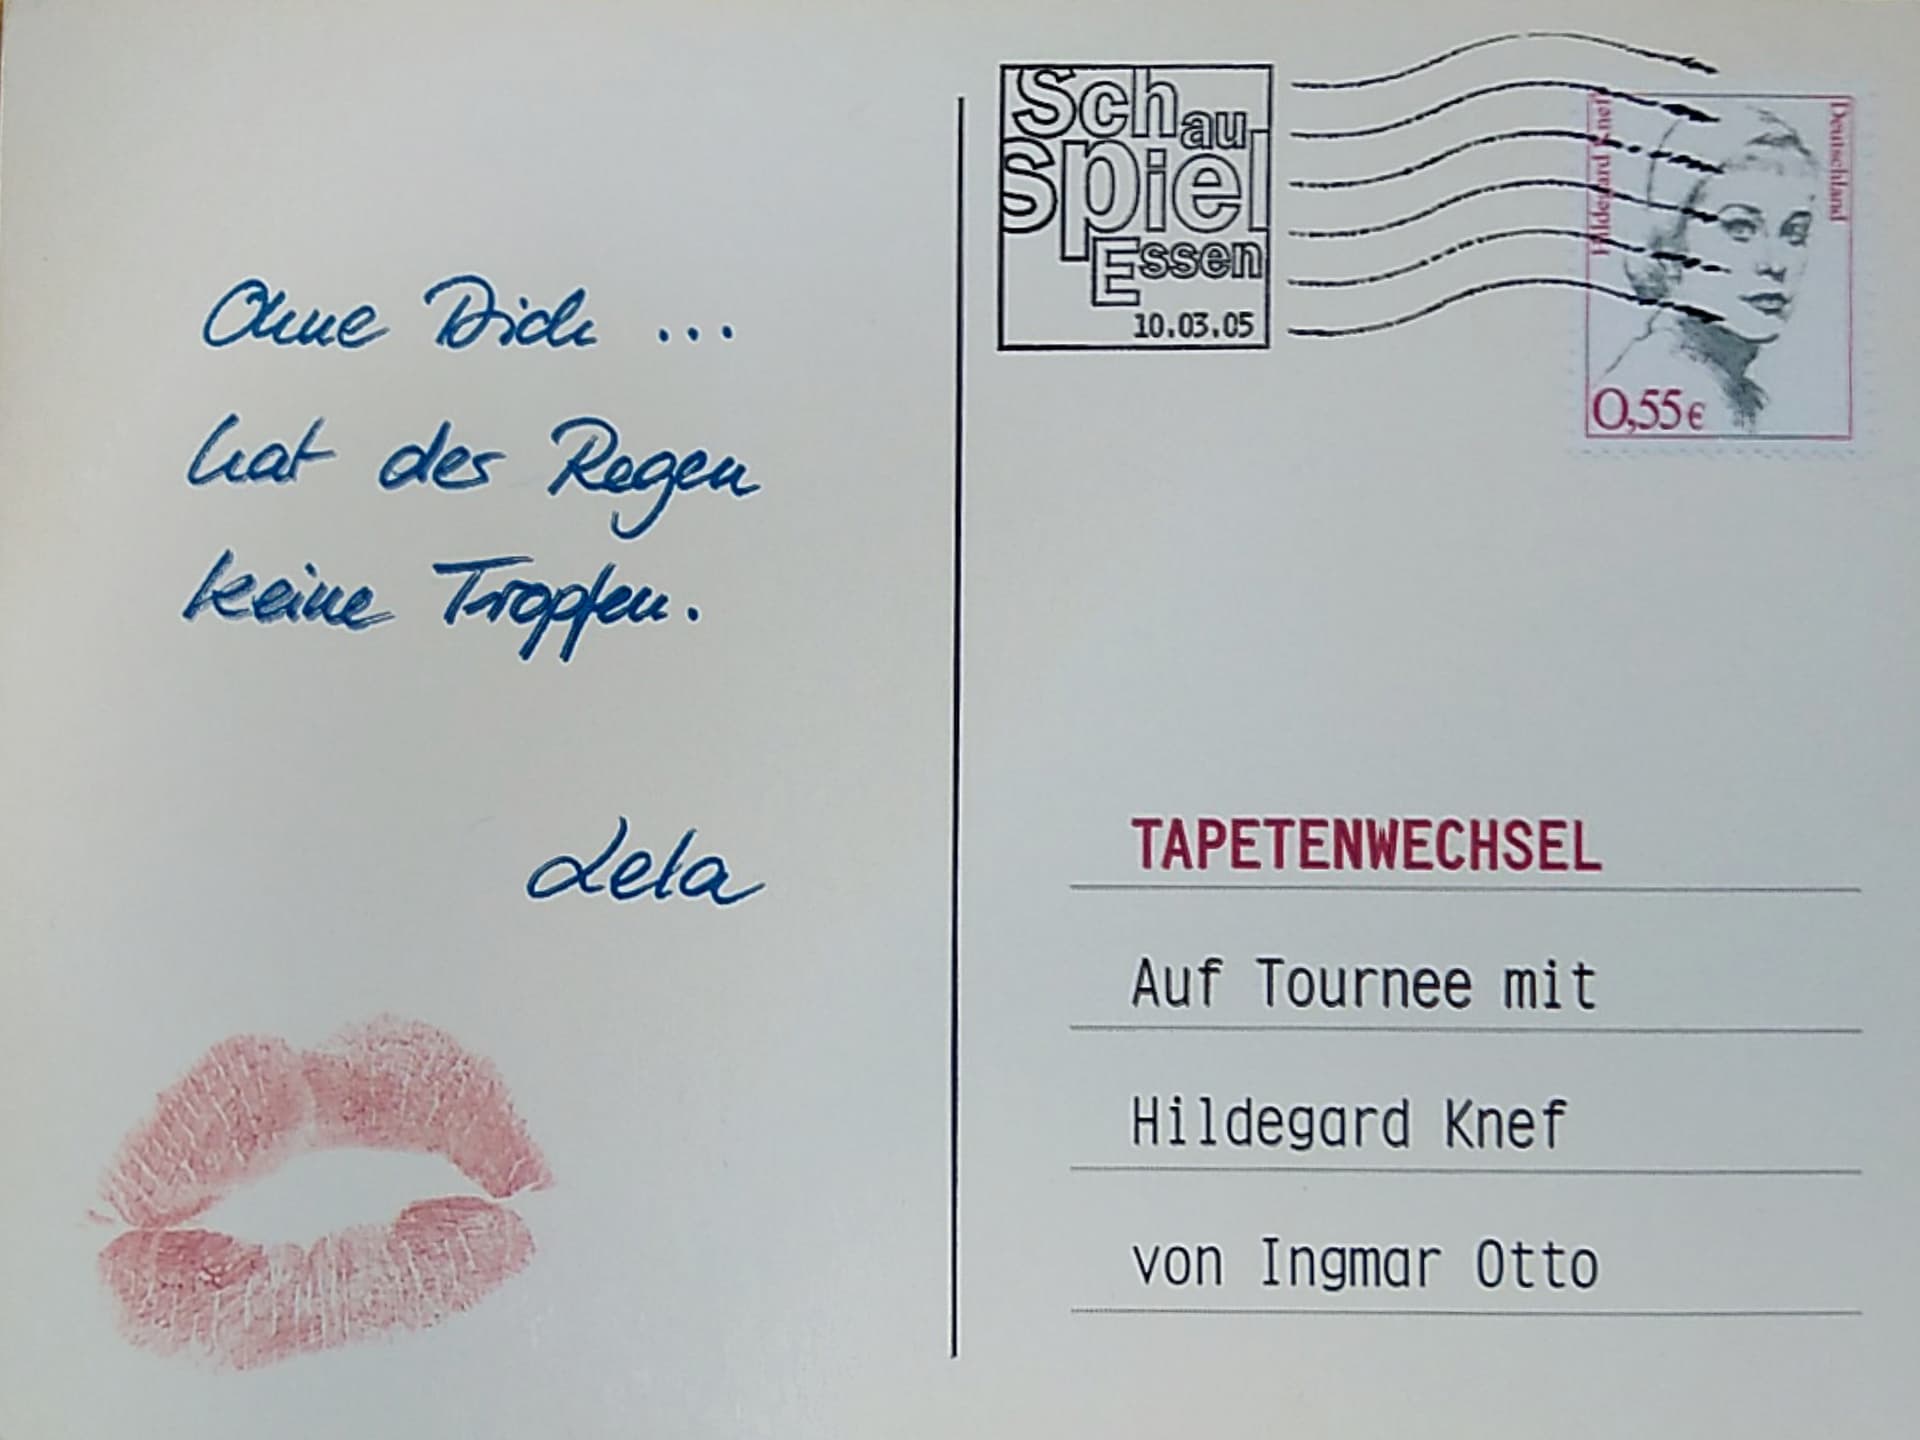 Ohne Dich ...
hat der Regen
keine Tropfen.
Lela
Schau
Spiel
Essen
10.03.05
Hildegard Knef
Deutschland
0,55€
TAPETENWECHSEL
Auf Tournee mit
Hildegard Knef
von Ingmar Otto